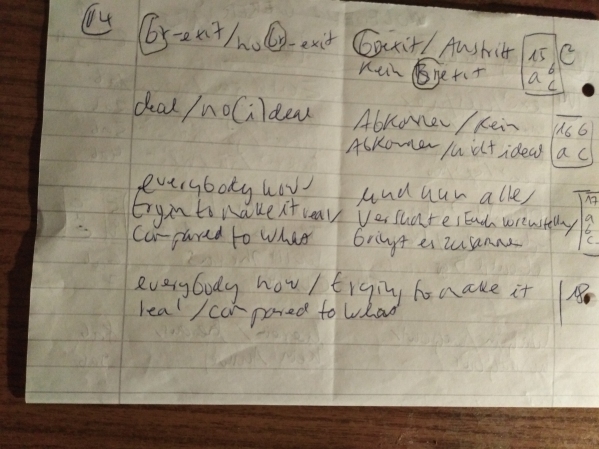 14
br-exit/no br-exit
Brexit/Austritt
Kein Brexit
15
a b
c
C
deal/no(i)deal
Abkommen/Kein
Abkommen/nicht ideal
16 b
a c
everybody now/
trying to make it real/
compared to what
und nun alle/
versucht es Euch
bringt es zusammen
17
a
b
c
everybody now/trying to make it
real/compared to what
18